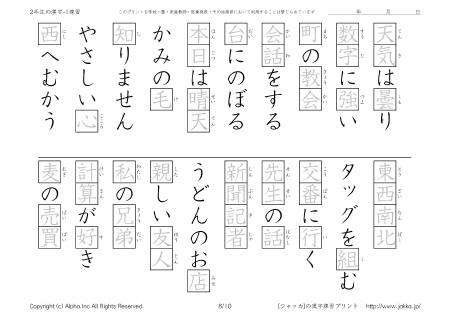 2年生の漢字-1練習
このプリントを学校・塾・家庭教師・医療機関・その他施設において利用することは禁じられています
年 月 日
天気は曇り
数字に強い
町の教会
会話をする
台にのぼる
本日は晴天
かみの毛
知りません
やさしい心
西へむかう
東西南北
タッグを組む
交番に行く
先生の話
新聞記者
うどんのお店
親しい友人
私の兄弟
計算が好き
麦の売買
Copyright (c) Alpha.Inc All Rights Reserved.
8/10
[ジャッカ]の漢字練習プリント http://www.jakka.jp/